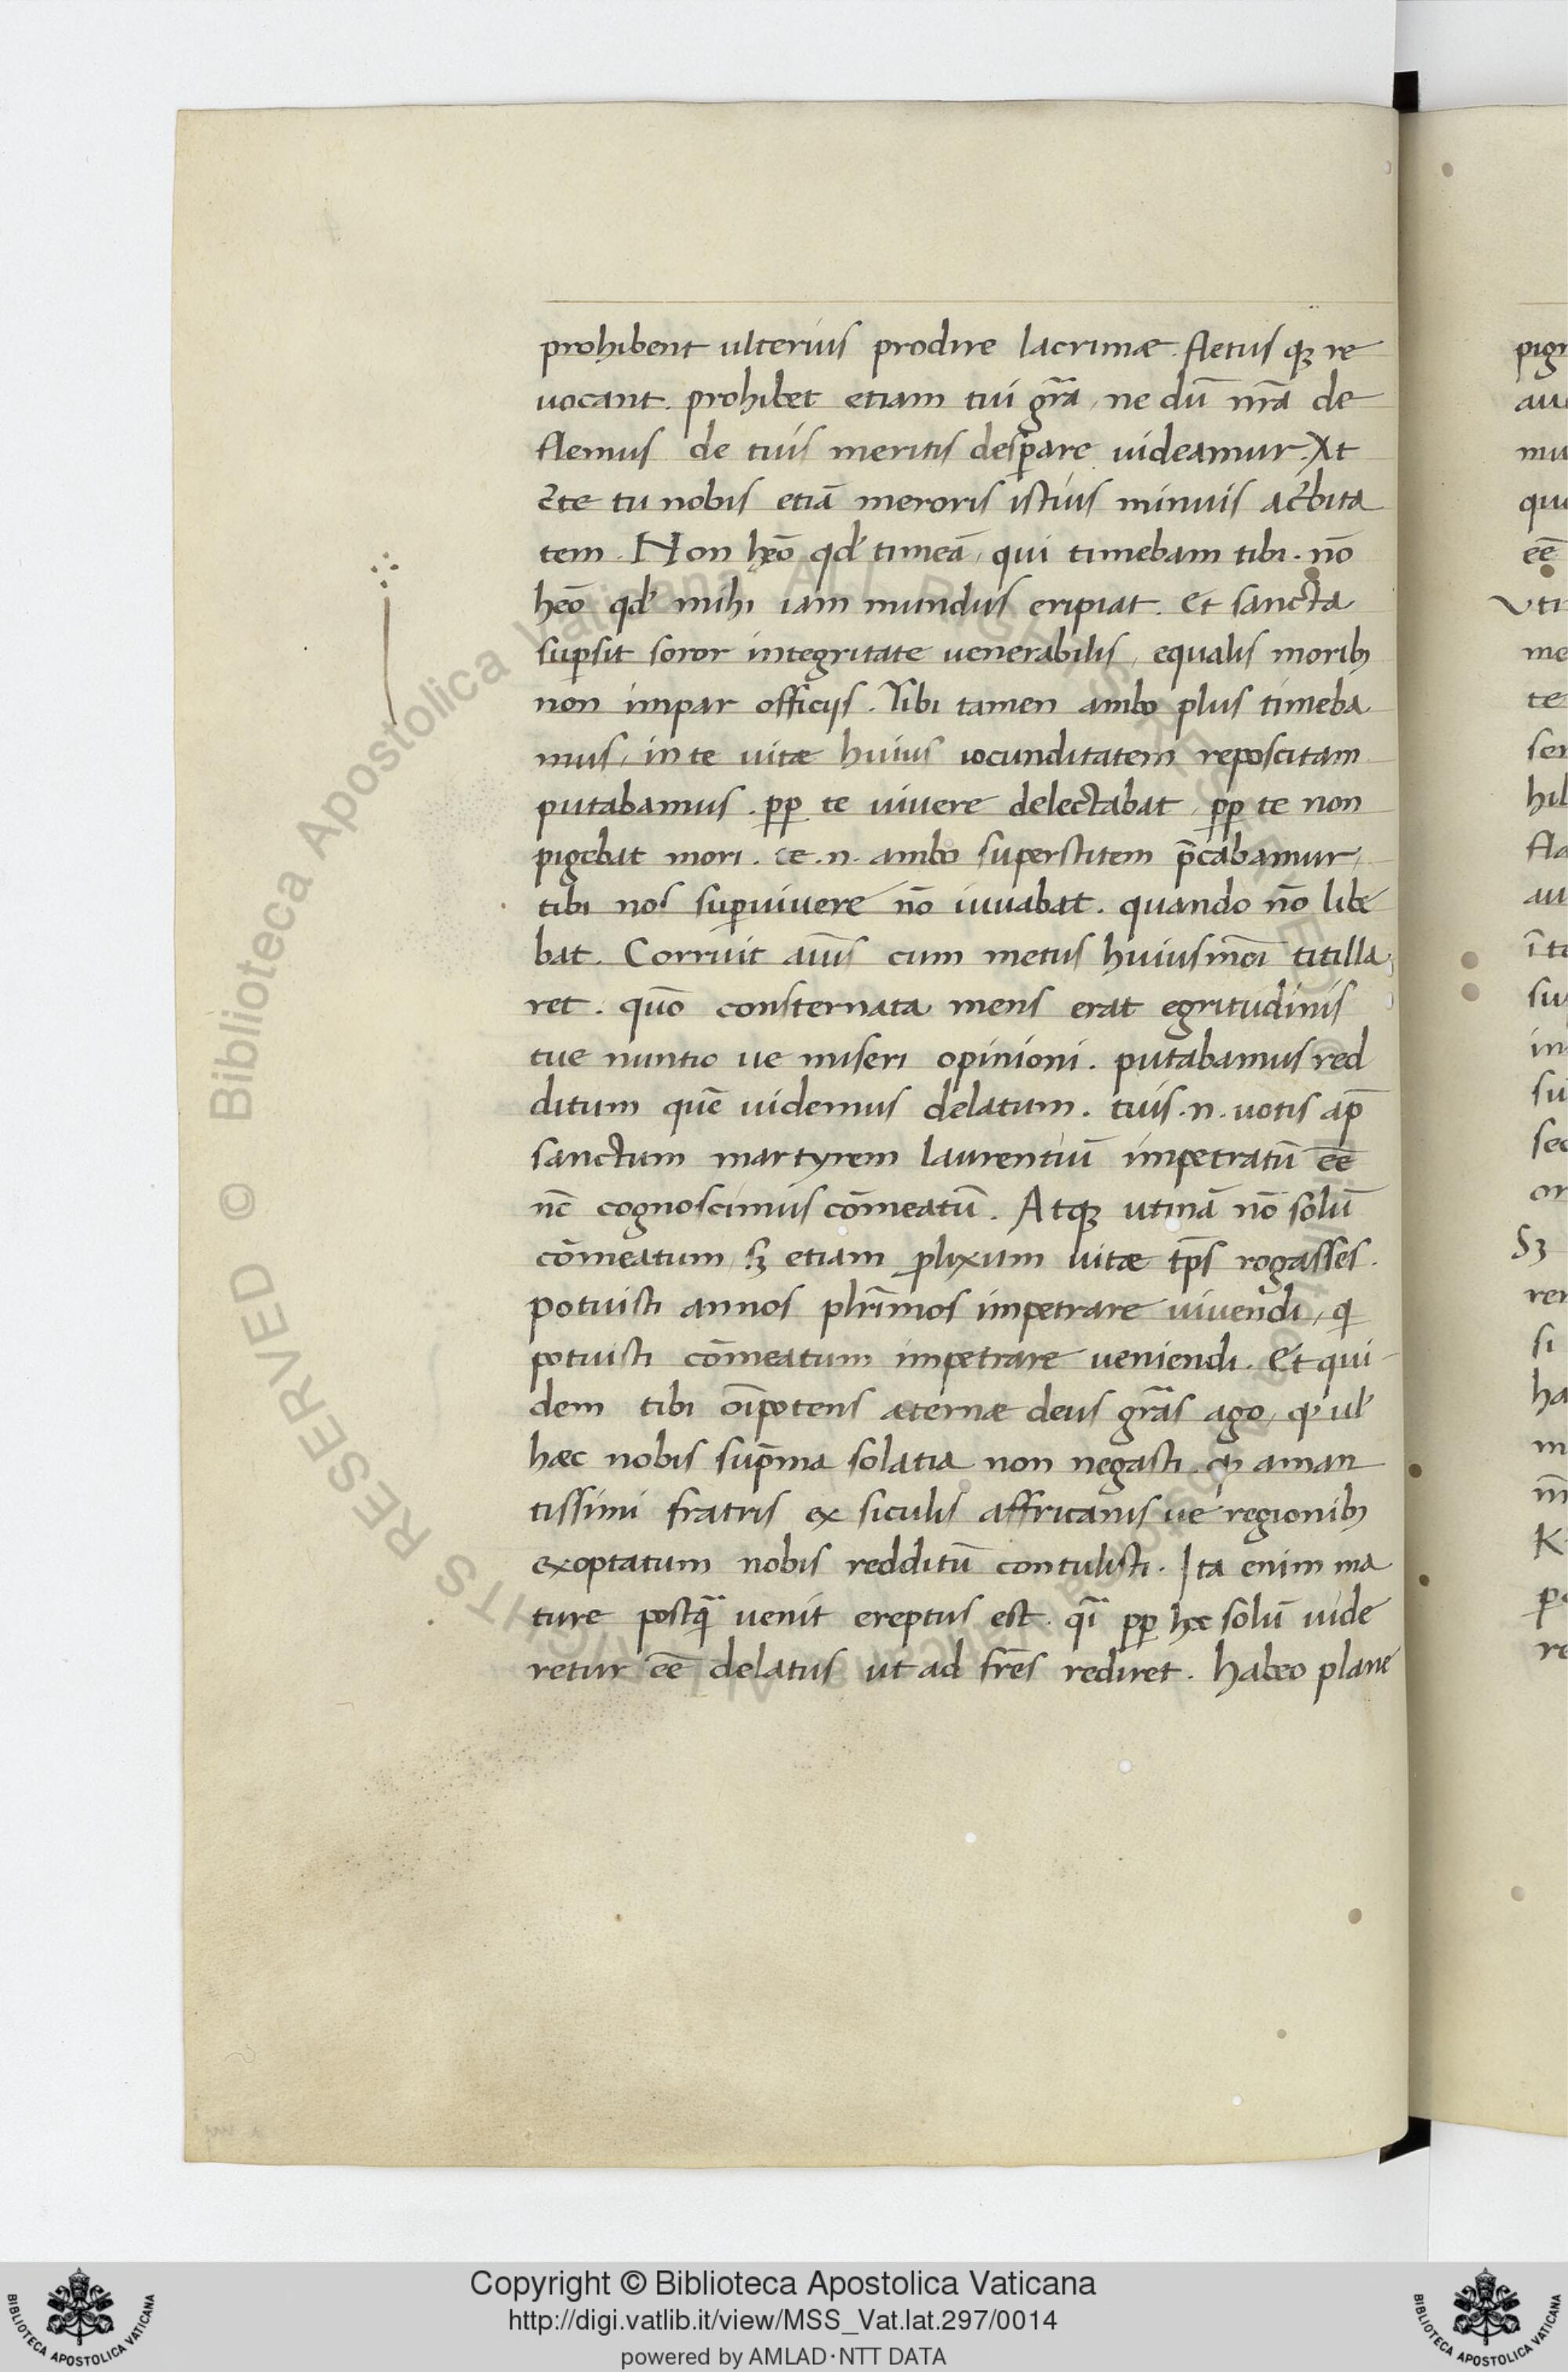 prohibent ulterius prodire lacrimæ. fletus qꝫ re
uocant. prohibet etiam tui gr̄a, ne dū nr̄a de
flemus de tuis meritis desꝑare uideamur. At
c̄te tu nobis etiā meroris istius minuis ac̄bita
tem. Non hēo qđ timeā, qui timebam tibi. nō
hēo qđ mihi iam mundus eripiat. Et sancta
suꝑsit soror integritate uenerabilis, equalis moribꝫ
non impar officijs. Tibi tamen ambo plus timeba
mus, in te uitæ huius iocunditatem reposcitam
putabamus. ꝓp te uiuere delectabat, ꝓp te non
pigebat mori. te .n. ambo superstitem p̄cabamur,
tibi nos suꝑuiuere nō iuuabat. quando nō libe
bat. Corruit aīus cum metus huiusmōi titilla
ret. quō consternata mens erat egritudinis
tue nuntio ue miseri opinioni. putabamus red
ditum quē uidemus delatum. tuis .n. uotis ap̄
sanctum martyrem laurentiū impetratū eē
nc̄ cognoscimus cōmeatū. Atqꝫ utinā nō solū
cōmeatum, sꝫ etiam ꝓlixum uitæ tp̄s rogasses.
potuisti annos plr̄imos impetrare uiuendi, q
potuisti cōmeatum impetrare ueniendi. Et qui-
dem tibi oīpotens æternæ deus gr̄as ago, ꝙ ul'
hæc nobis sup̄ma solatia non negasti. aman
tissimi fratris ex siculis affricanis ue regionibꝫ
exoptatum nobis redditū contulisti. Ita enim ma
ture postꝗ̄ uenit ereptus est. qī ꝓp hoc solū uide
retur eē delatus ut ad fr̄es rediret. habeo plane
pigr
mu
eē
me
te
ser
hil
fla
au
su
in
sed
or
Sꝫ
rer
si
ha
re
Copyright © Biblioteca Apostolica Vaticana
http://digi.vatlib.it/view/MSS_Vat.lat.297/0014
powered by AMLAD·NTT DATA
BIBLIOTECA APOSTOLICA VATICANA
BIBLIOTECA APOSTOLICA VATICANA